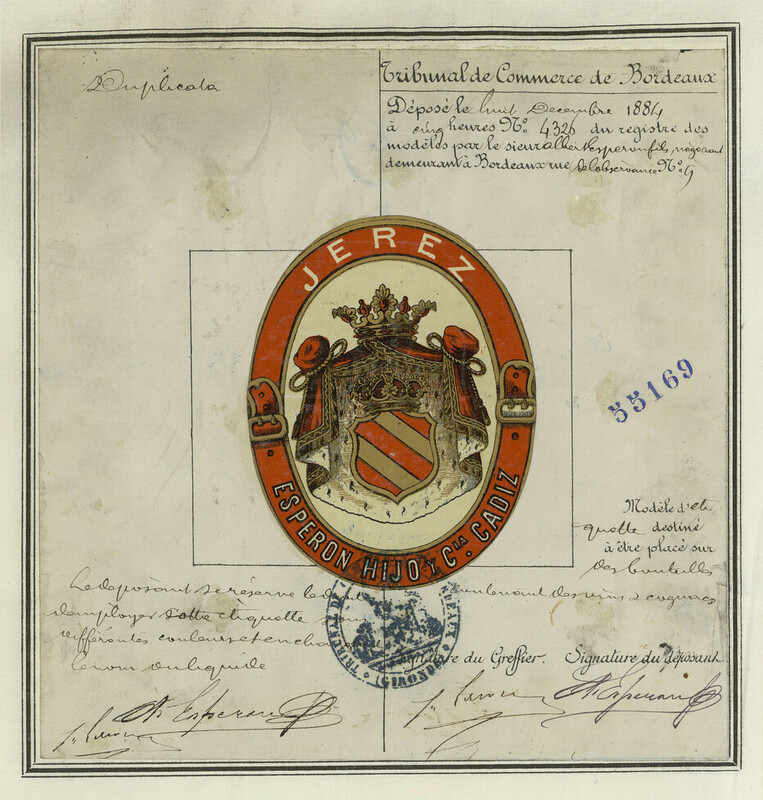 Duplicata
Tribunal de Commerce de Bordeaux
Déposé le huit Decembre 1884
à cinq heures N° 4326 du registre des
modèles par le sieur albert Esperon fils, négociant
demeurant à Bordeaux rue de lobservance N° 9
JEREZ
ESPERON HIJO Y Cia. CADIZ
55169
Modèle d'eti
quette destiné
à être placé sur
des bouteilles
contenant des vins & cognacs
Le deposant se réserve le droit
demployer cette étiquette
differentes couleurs et en
le nom du liquide
TRIBUNAL DE
(GIRONDE)
Signature du Greffier. Signature du déposant
A Esperon
A Esperon